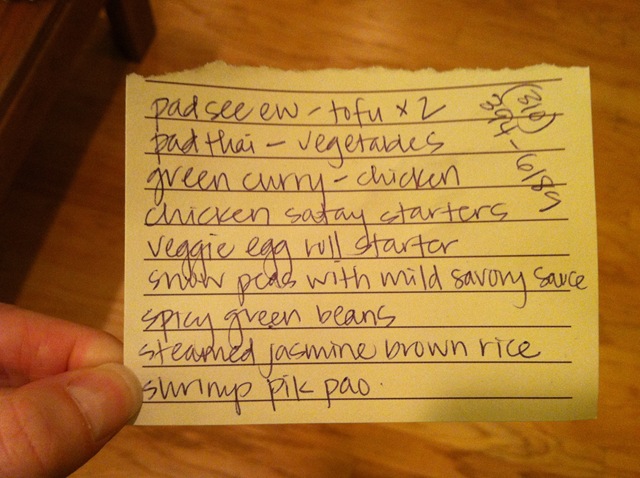 pad see ew - tofu x 2
pad thai - vegetables
green curry - chicken
chicken satay starters
veggie egg roll starter
snow peas with mild savory sauce
spicy green beans
steamed jasmine brown rice
shrimp pik pao.
(310)
394-6189